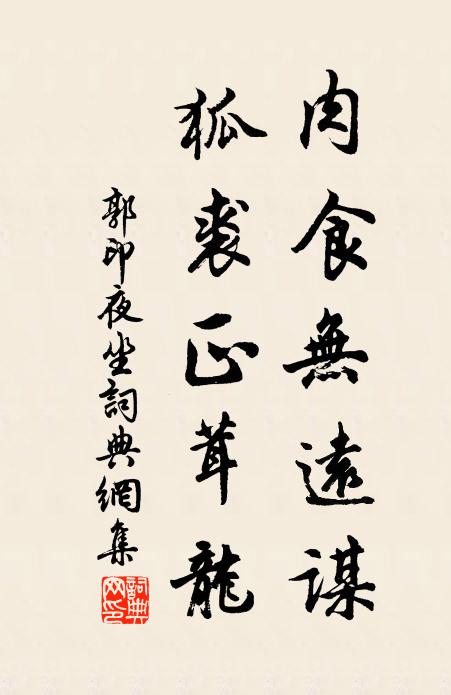 肉食無遠謀
狐裘正茸龍
郭印夜坐詞典網集
詞典
网印